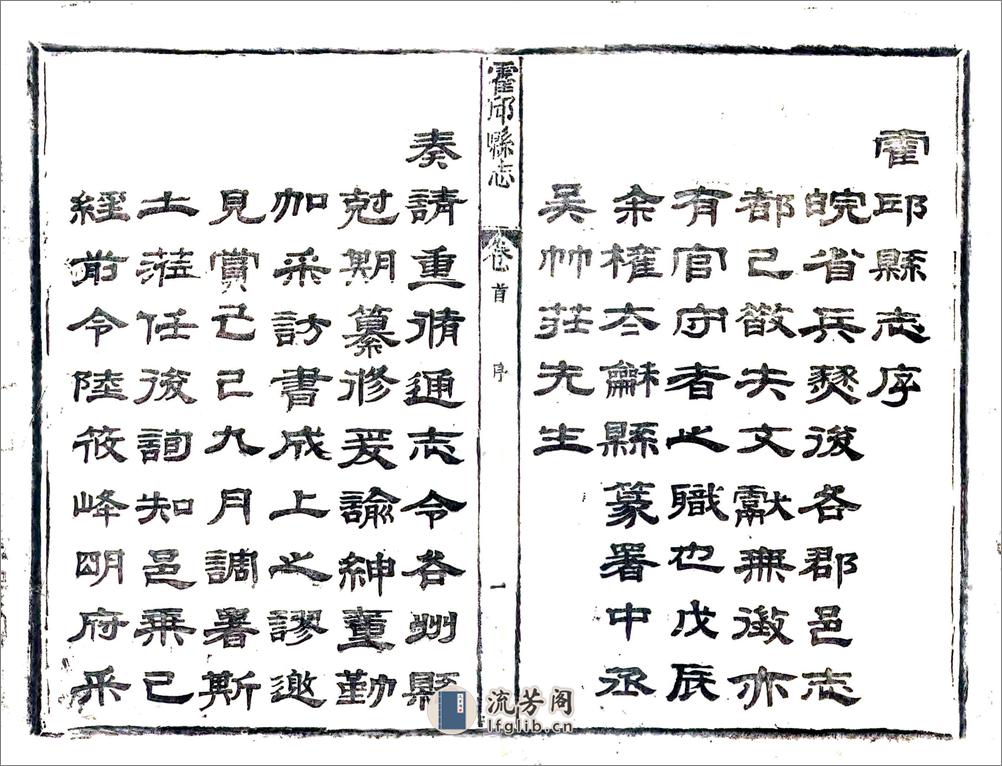 霍邱縣志序
皖省兵燹後各郡邑志
都已散失文獻無徵亦
有官守者之職也戊辰
余權太龢縣篆署中丞
吳竹莊先生
霍邱縣志 卷首 序 一
奏請重脩通志令各州縣
尅期纂修爰諭紳董勤
加采訪書成上之謬邀
見賞己巳九月調署斯
土蒞任後詢知邑乘已
經前令陸筱峰明府采
流芳阁
lfglib.cn